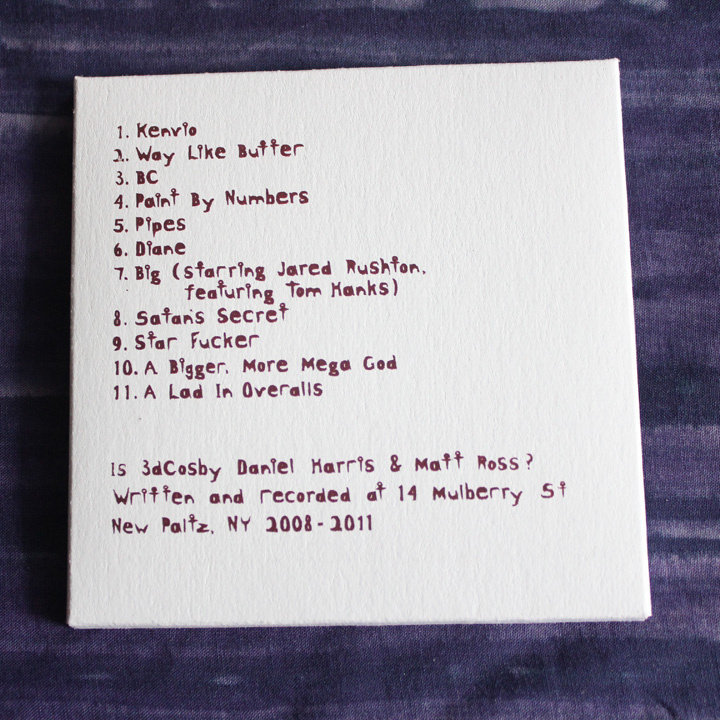 1. Kenvio
2. Way Like Butter
3. BC
4. Paint By Numbers
5. Pipes
6. Diane
7. Big (starring Jared Rushton,
featuring Tom Hanks)
8. Satan's Secret
9. Star Fucker
10. A Bigger, More Mega God
11. A Lad In Overalls
Is 3dCosby Daniel Harris & Matt Ross?
Written and recorded at 14 Mulberry St
New Paltz, NY 2008-2011